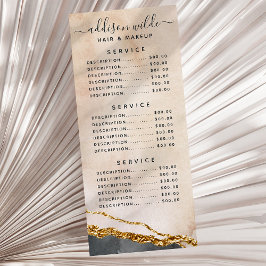 addison wilde
HAIR & MAKEUP
SERVICE
DESCRIPTION............ $00.00
DESCRIPTION............ $00.00
DESCRIPTION............ $00.00
DESCRIPTION............ $00.00
DESCRIPTION............ $00.00
DESCRIPTION............ $00.00
SERVICE
DESCRIPTION............ $00.00
DESCRIPTION............ $00.00
DESCRIPTION............ $00.00
DESCRIPTION............ $00.00
DESCRIPTION............ $00.00
DESCRIPTION............ $00.00
SERVICE
DESCRIPTION............ $00.00
DESCRIPTION............ $00.00
DESCRIPTION............ $00.00
DESCRIPTION............ $00.00
DESCRIPTION............ $00.00
DESCRIPTION............ $00.00